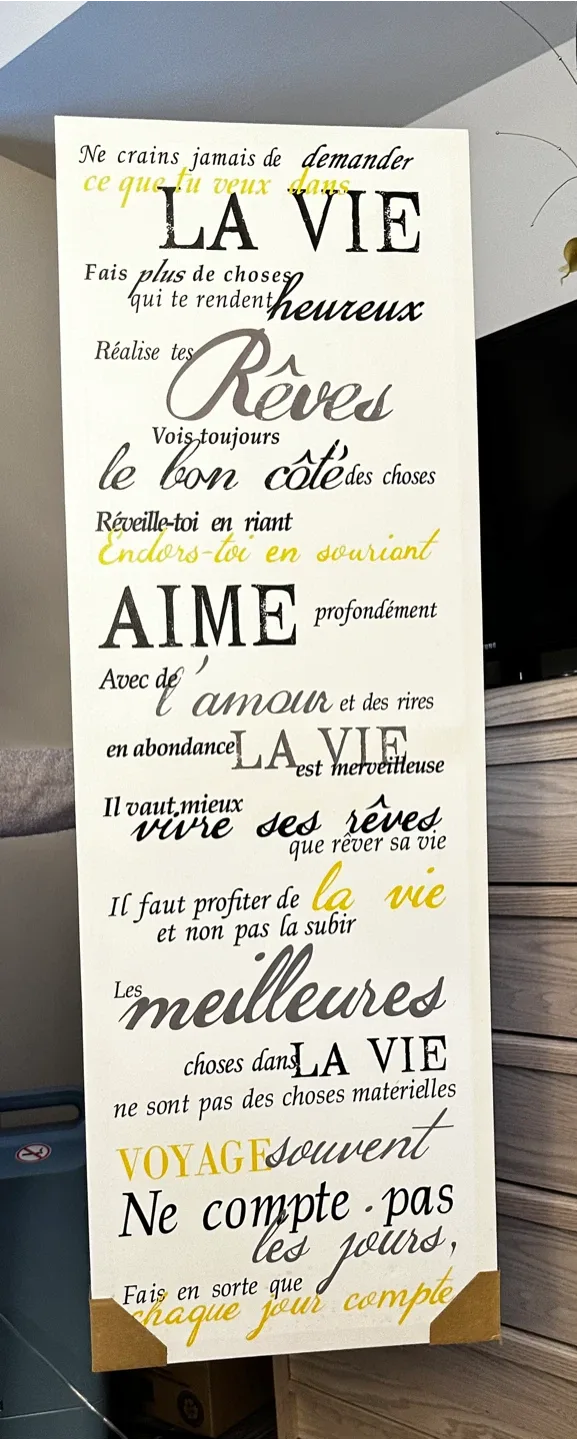 Ne crains jamais de demander
ce que tu veux dans
LA VIE
Fais plus de choses
qui te rendent heureux
Réalise tes Rêves
Vois toujours
le bon côté des choses
Réveille-toi en riant
Endors-toi en souriant
AIME profondément
Avec de l'amour et des rires
en abondance LA VIE
est merveilleuse
Il vaut mieux
vivre ses rêves
que rêver sa vie
Il faut profiter de la vie
et non pas la subir
Les meilleures
choses dans LA VIE
ne sont pas des choses matérielles
VOYAGE souvent
Ne compte pas
les jours,
Fais en sorte que
chaque jour compte